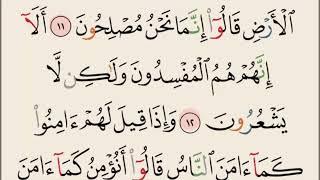 ٱلۡأَرۡضِ قَالُوٓاْ إِنَّمَا نَحۡنُ مُصۡلِحُونَ ١١ أَلَآ
إِنَّهُمۡ هُمُ ٱلۡمُفۡسِدُونَ وَلَٰكِن لَّا
يَشۡعُرُونَ ١٢ وَإِذَا قِيلَ لَهُمۡ ءَامِنُواْ
كَمَآ ءَامَنَ ٱلنَّاسُ قَالُوٓاْ أَنُؤۡمِنُ كَمَآ ءَامَنَ